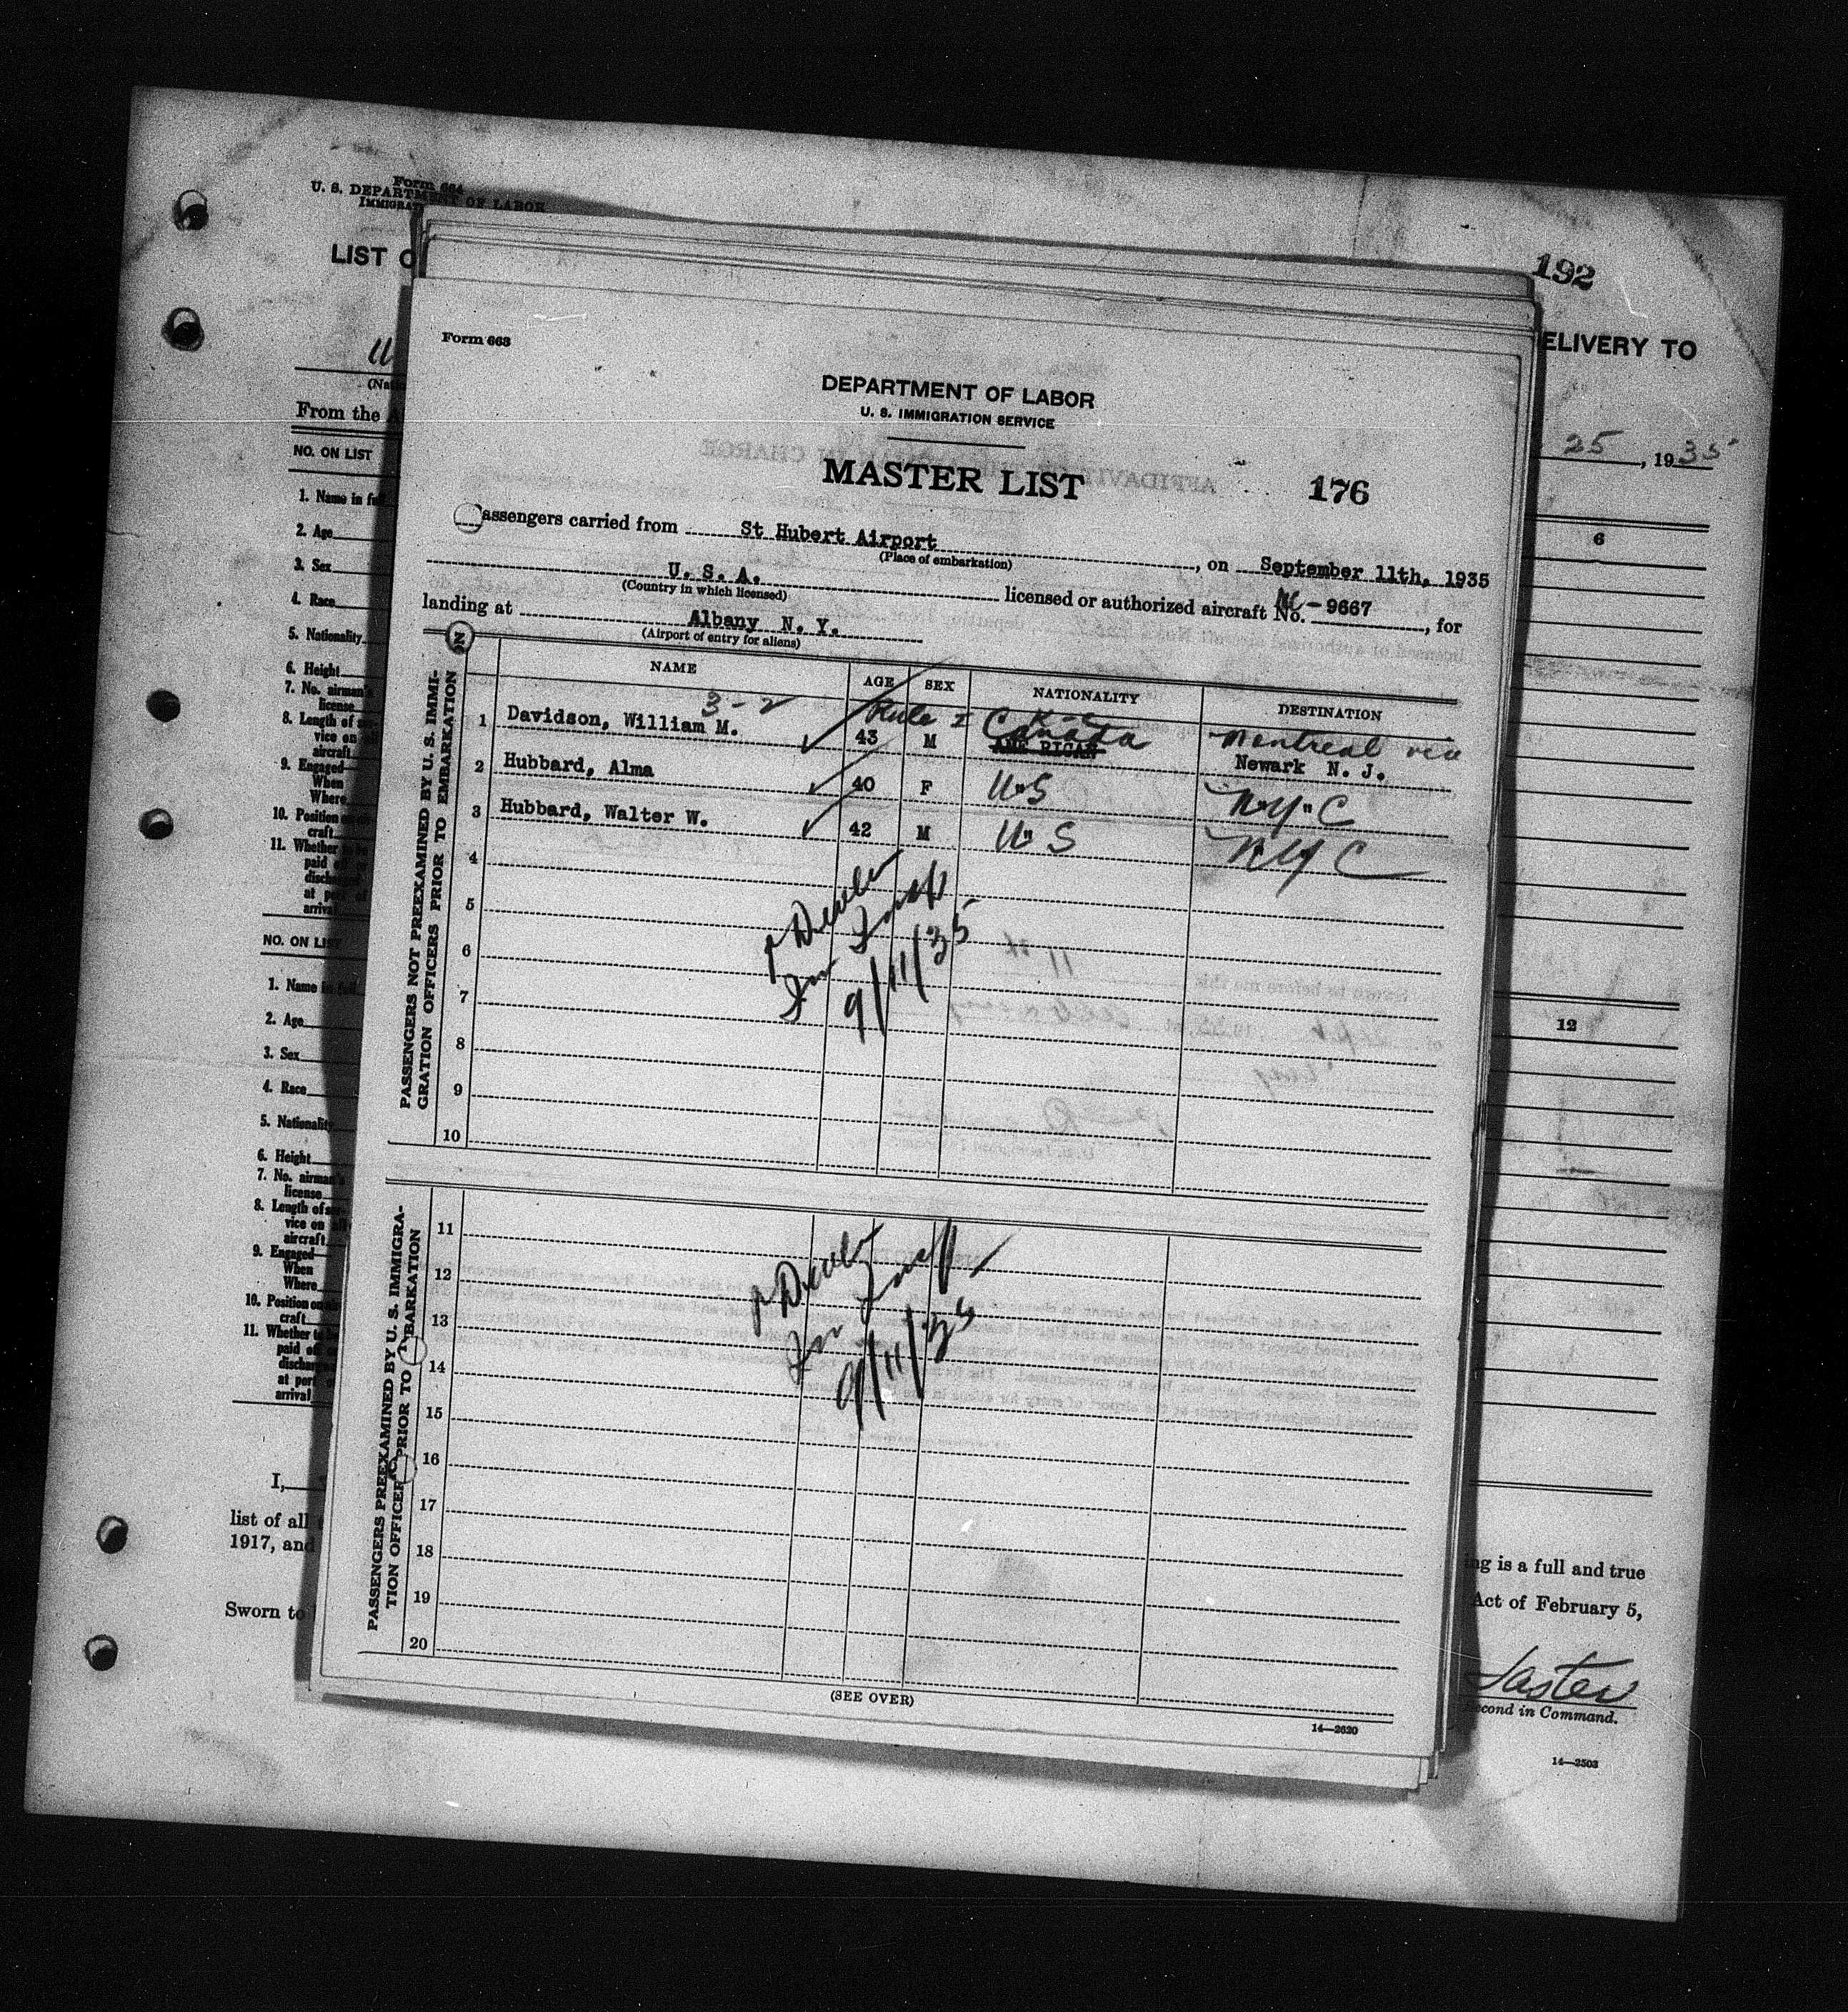 Form 664
U. S. DEPARTMENT OF LABOR
IMMIGRAT
LIST O
192
ELIVERY TO
(Nati
From the A
25, 1935
NO. ON LIST
6
1. Name in full
2. Age
3. Sex
4. Race
5. Nationality
6. Height
7. No. airman's
license
8. Length of ser-
vice on
aircraft
9. Engaged
When
Where
10. Position on air-
craft
11. Whether to be
paid off or
discharged
at port of
arrival
NO. ON LIST
12
1. Name in full
2. Age
3. Sex
4. Race
5. Nationality
6. Height
7. No. airman's
license
8. Length of ser-
vice on
aircraft
9. Engaged
When
Where
10. Position on air-
craft
11. Whether to be
paid off or
discharged
at port of
arrival
I,
list of all
1917, and
Sworn to
ing is a full and true
Act of February 5,
econd in Command.
14—2503
Form 663
DEPARTMENT OF LABOR
U. S. IMMIGRATION SERVICE
MASTER LIST 176
assengers carried from St Hubert Airport, on September 11th, 1935
(Place of embarkation)
U. S. A. licensed or authorized aircraft No. NC-9667, for
(Country in which licensed)
landing at Albany N. Y.
(Airport of entry for aliens)
PASSENGERS NOT PREEXAMINED BY U. S. IMMI-
GRATION OFFICERS PRIOR TO EMBARKATION
NAME AGE SEX NATIONALITY DESTINATION
3-2 Rule 2
1 Davidson, William M. 43 M AMERICAN Canada Montreal via
Newark N. J.
2 Hubbard, Alma 40 F U.S N.Y.C
3 Hubbard, Walter W. 42 M U.S N.Y.C
4
5
6
9/11/35
7
8
9
10
PASSENGERS PREEXAMINED BY U. S. IMMIGRA-
TION OFFICERS PRIOR TO EMBARKATION
11
12
13
9/11/35
14
15
16
17
18
19
20
(SEE OVER)
14—2620